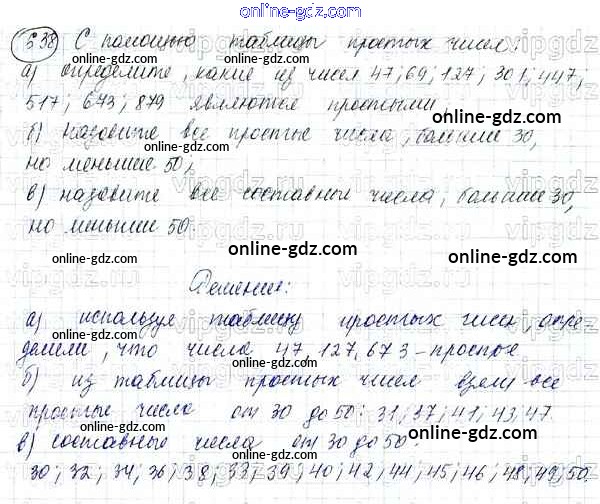 online-gdz.com
538 С помощью таблицы простых чисел:
online-gdz.com
а) определите, какие из чисел 47; 69; 127; 301; 447;
517; 673; 879 являются простыми,
online-gdz.com
б) назовите все простые числа, больше 30,
но меньше 50;
online-gdz.com
в) назовите все составные числа, больше 30,
но меньше 50.
online-gdz.com
Решение:
online-gdz.com
а) используя таблицу простых чисел, опре
делели, что числа 47, 127, 673 - простые
online-gdz.com
б) из таблицы простых чисел взяли все
простые числа от 30 до 50: 31; 37; 41; 43; 47.
online-gdz.com
в) составные числа от 30 до 50:
30; 32; 34, 36; 38; 33; 39; 40; 42; 44; 45; 46; 48; 49; 50.
online-gdz.com